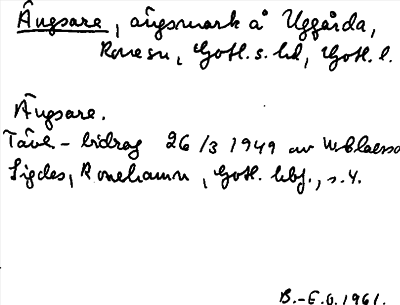 Ängsare, ängsmark å Uggårda,
Rone sn, Gotl. s. hd, Gotl. l.
Ängsare.
Tävl-bidrag 26/3 1949 av
Sigdes, Ronehamn, Gotl. hbf., s. 4.
B.-E.O. 1961.